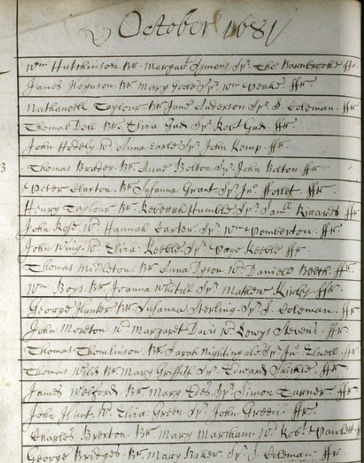 October 1681
Wm Hutchinson Br. Margart Symons Sp. Tho Barnbrooke ffr.
James Hoynton Br. Mary Goose Sp. Wm Peake ffr.
Nathaniell Taylour Br. Jane Anderson Sp. S. Coleman ffr.
Thomas Doll Br. Eliza Gad Sp. Robt Gad ffr.
John Hodely Wr. Anna Earle Sp. John Kemp ffr.
3 Thomas Bradey Br. Anne Bolton Sp. John Bolton ffr.
Peter Claxton Br. Susanna Grant Sp. Jno. ffr.
Henry Taylour Br. Rebeckah Humble Sp. Saml. Edwards ffr.
John Rose Wr. Hannah Carter Sp. Wm Pemberton ffr.
John Wing Wr. Eliza: Keeble Sp. Keeble ffr.
Thomas Midleton Br. Anna Dyson Wr. Daniell Booth ffr.
Wm Boys Br. Joanna Whitell Sp. Mathew Kirby ffr.
George Hunter Br. Susanna Sterling Sp. S. Coleman ffr.
John Moreton Wr. Margaret Davis Wr. Lewys Stevens ffr.
Thomas Thomlinson Br. Sarah Nightingale Sp. Jno. ffr.
Thomas Wills Br. Mary Griffith Sp. Edward ffr.
James Welford Br. Mary Sp. Simon Turner ffr.
John Hunt Br. Eliza: Green Sp. John Green ffr.
Charles Brexton Br. Mary Markham Wr. Robt
George Bridges Br. Mary Baker Sp. S. Coleman ffr.